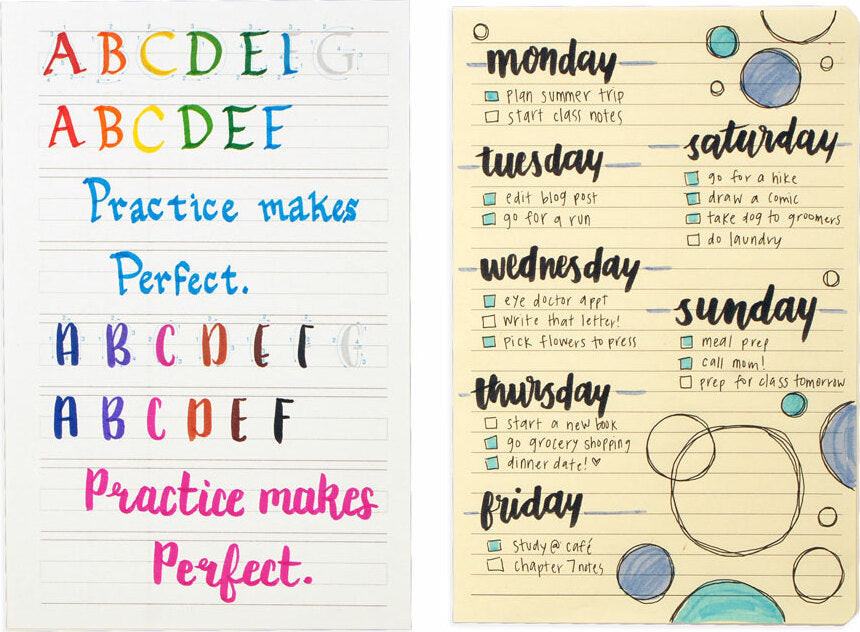 A B C D E F G
A B C D E F
Practice makes
Perfect.
A B C D E F G
A B C D E F
Practice makes
Perfect.
monday
plan summer trip
start class notes
tuesday
edit blog post
go for a run
wednesday
eye doctor appt
write that letter!
pick flowers to press
thursday
start a new book
go grocery shopping
dinner date! ♡
friday
study @ café
chapter 7 notes
saturday
go for a hike
draw a comic
take dog to groomers
do laundry
sunday
meal prep
call mom!
prep for class tomorrow